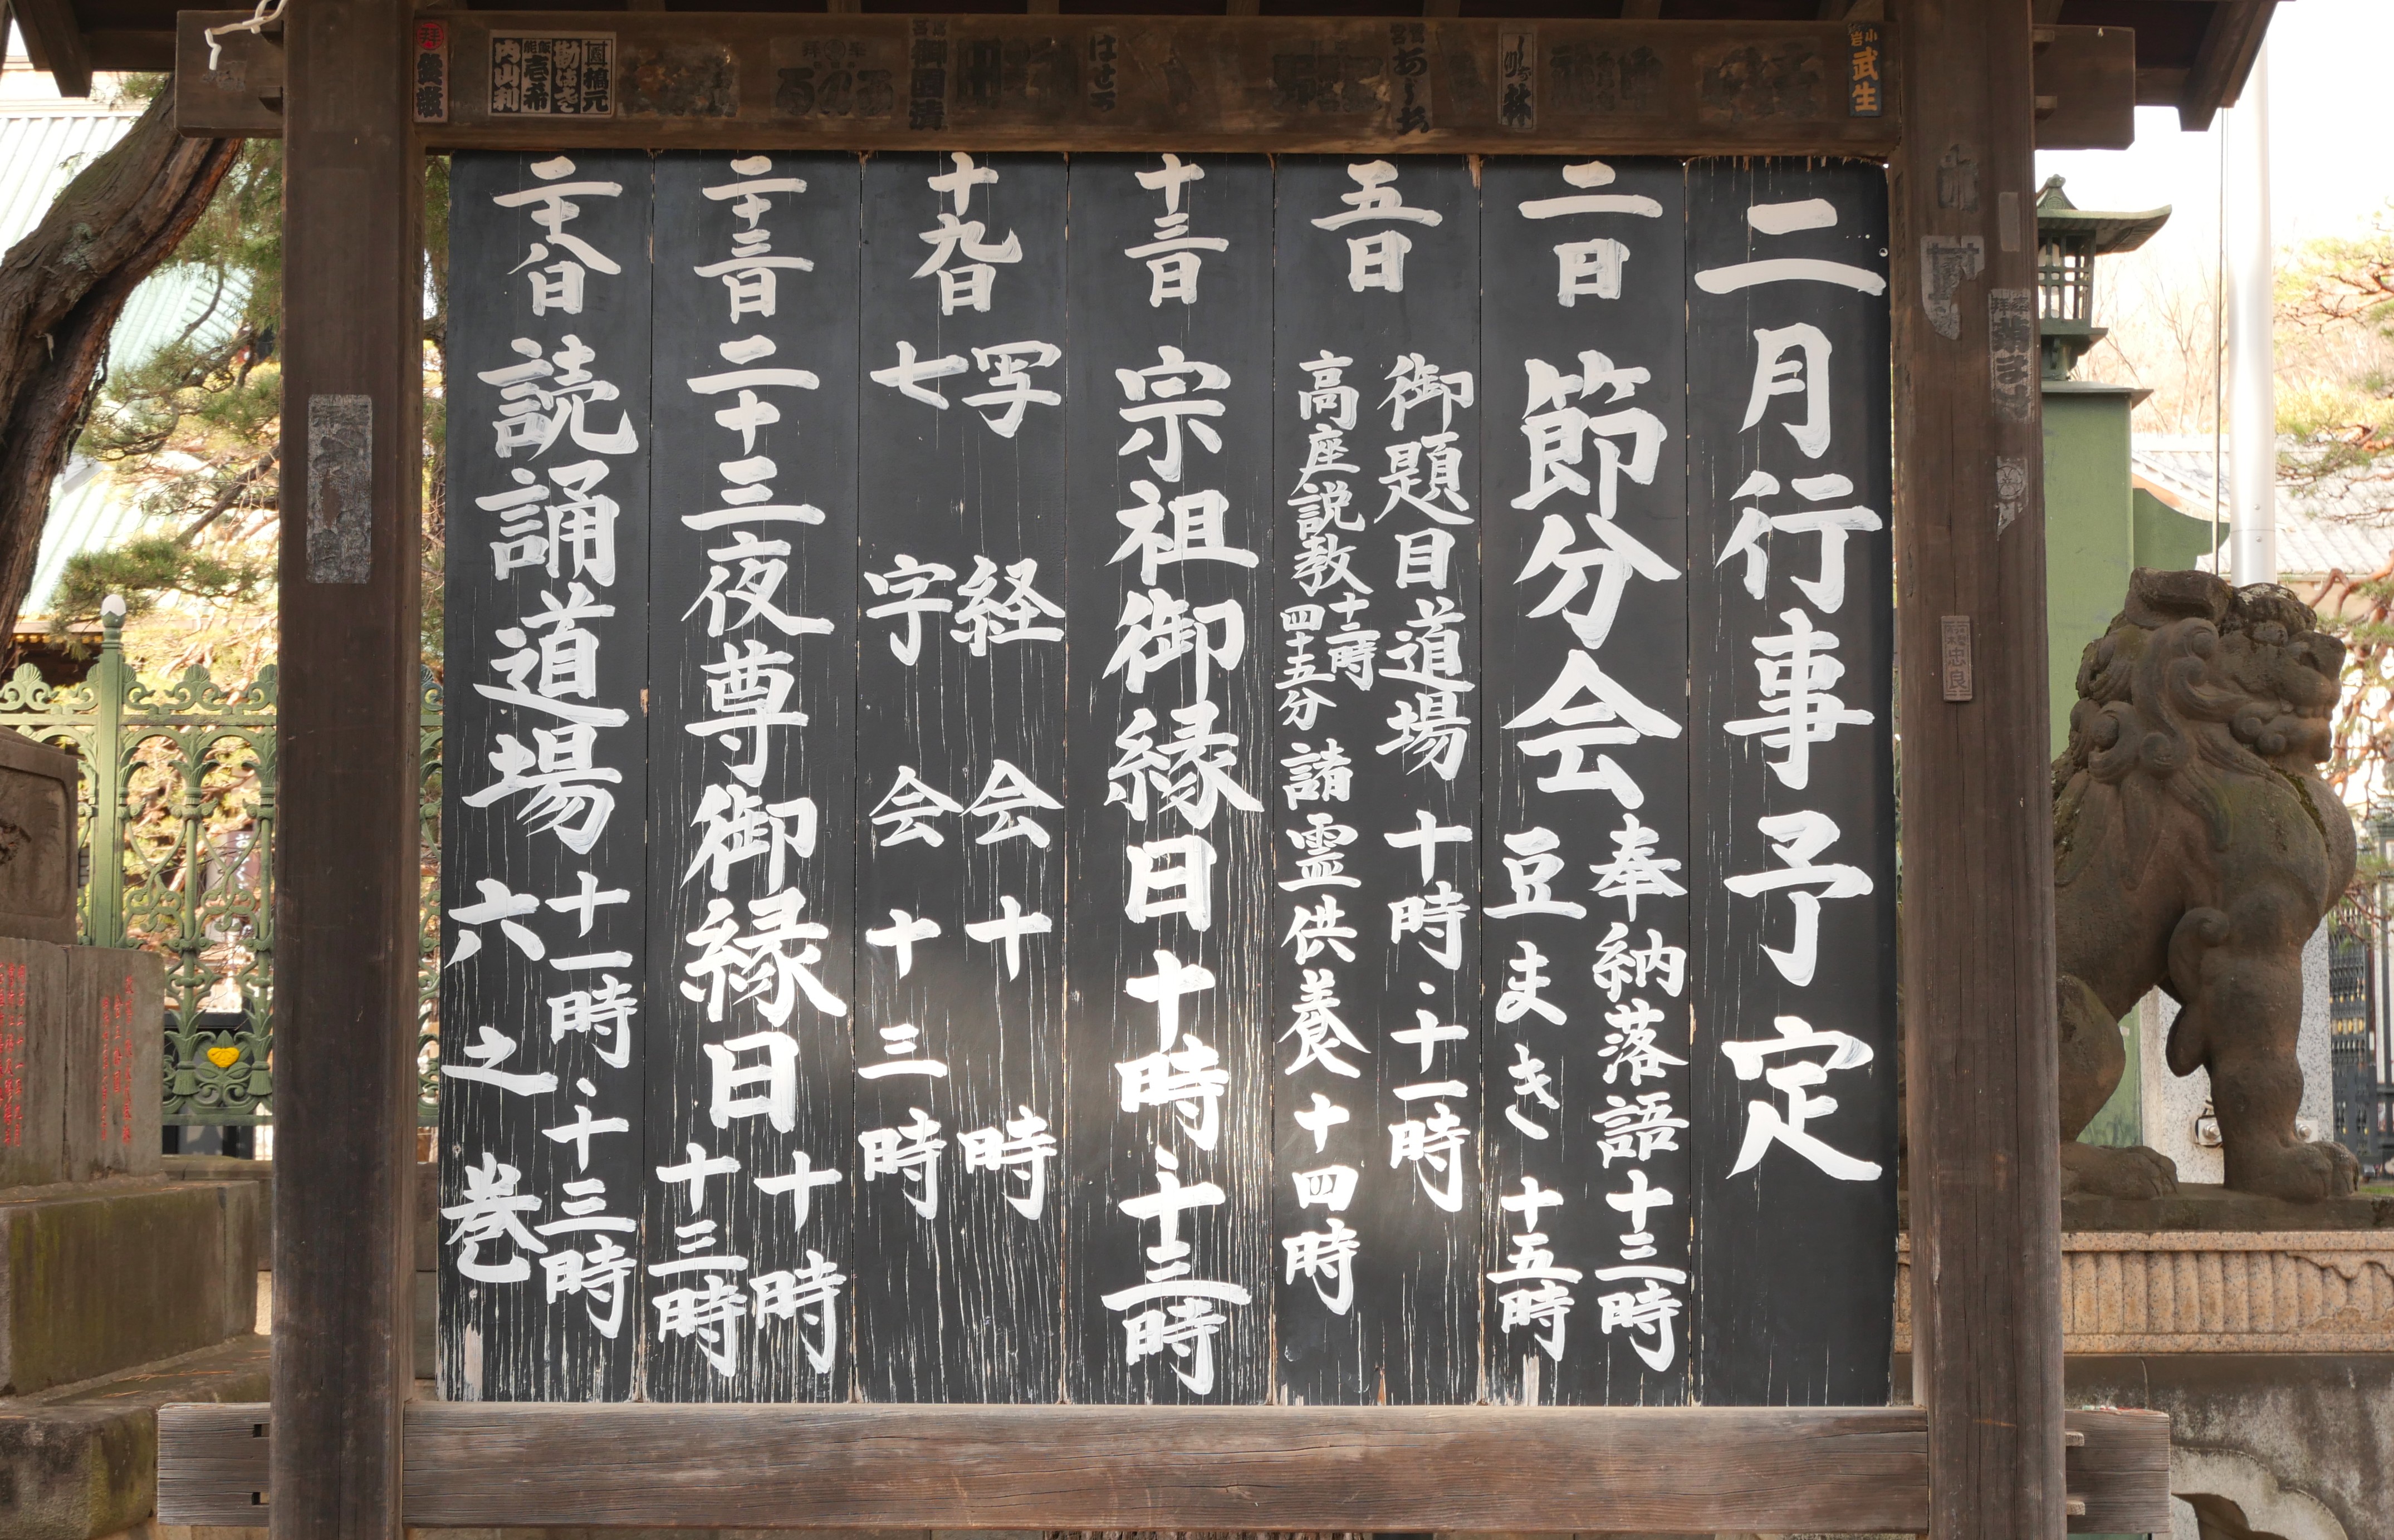 二月行事予定
二日 節分会
奉納落語十三時
豆まき十五時
五日
御題目道場 十時・十一時
高座説教
十二時
四十五分
諸霊供養 十四時
十三日 宗祖御縁日 十時・十三時
十九日
写経会十時
七字会十三時
二十三日 二十三夜尊御縁日
十時
十三時
二十八日 読誦道場
十一時・十三時
六之巻
小岩
武生
橋元
内山利